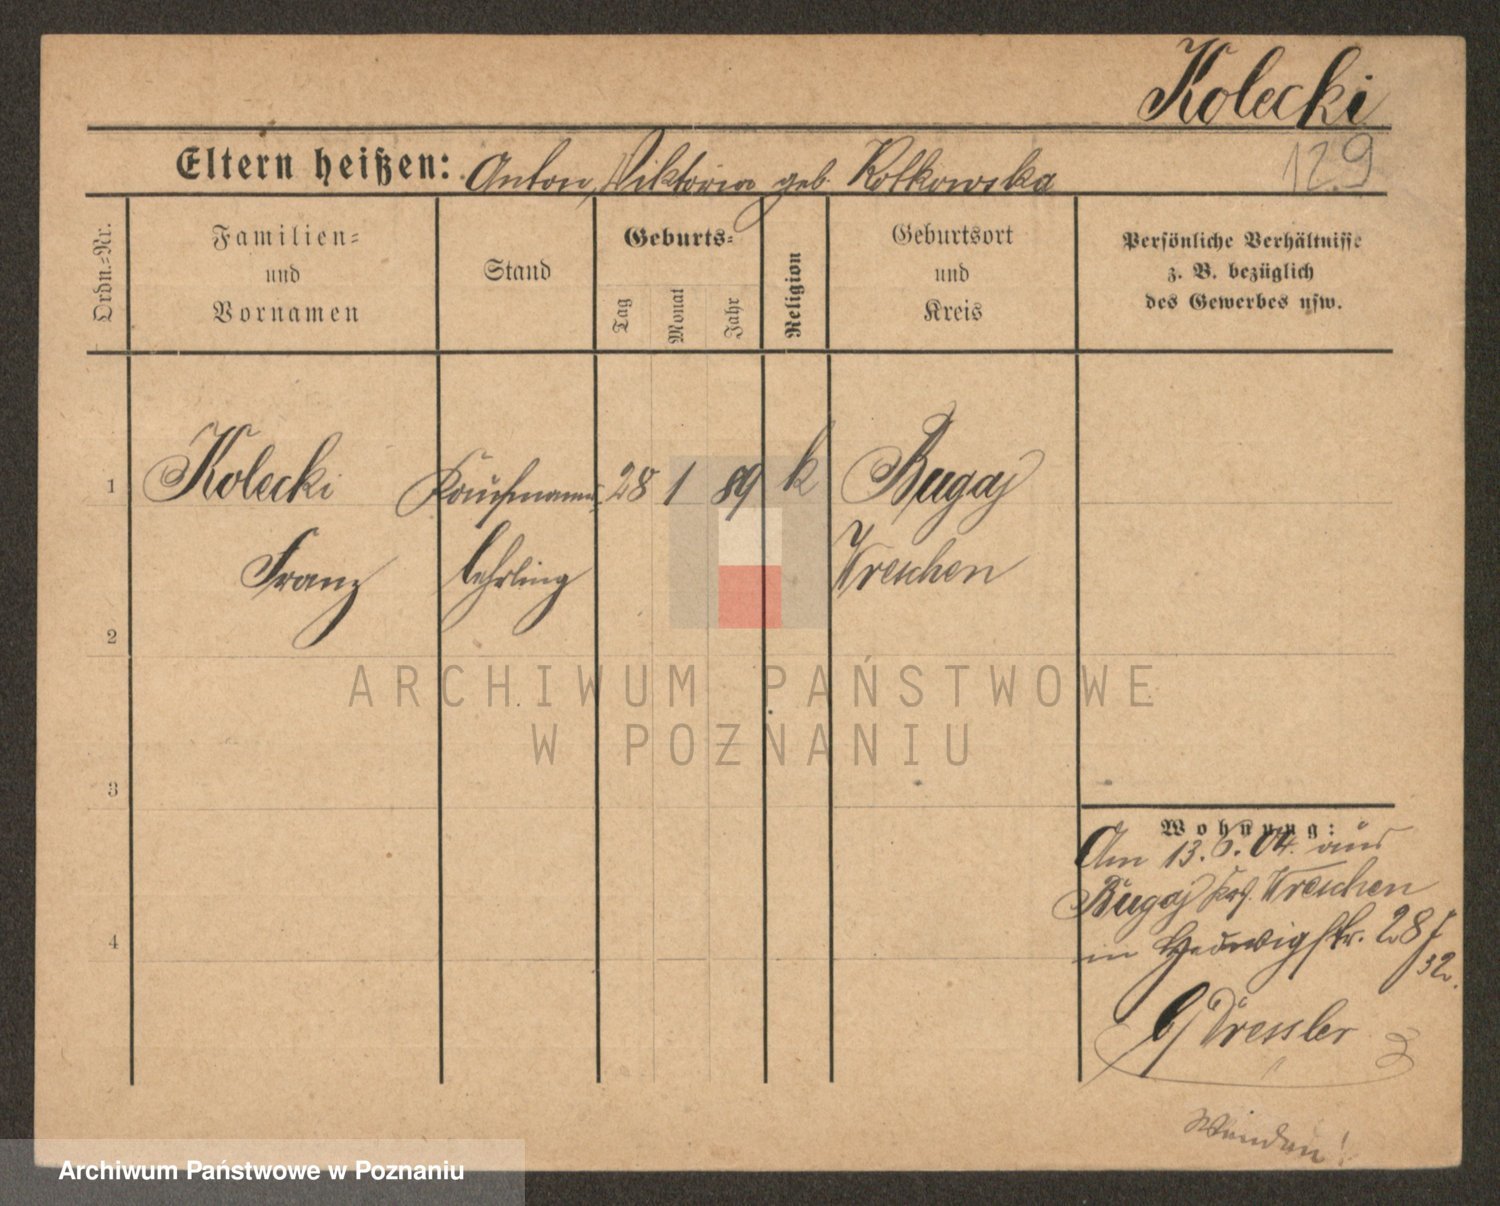 Kolecki
Eltern heißen: Anton, Viktoria geb. Kotkowska
129
Ordn.=Nr.
Familien=
und
Vornamen
Stand
Geburts=
Tag
Monat
Jahr
Religion
Geburtsort
und
Kreis
Persönliche Verhältnisse
z. B. bezüglich
des Gewerbes usw.
1 Kolecki Kaufmanns= 28 1 89 k Bugaj
Franz lehrling Wreschen
2
3
4
Wohnung:
Am 13. 6. 04. aus
Bugaj Krs. Wreschen
in Hedwigstr. 28
32.
b/ Dressler
Wenden!
ARCHIWUM PAŃSTWOWE
W POZNANIU
Archiwum Państwowe w Poznaniu